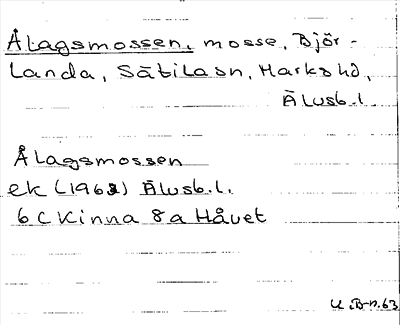 Ålagsmossen, mosse, Björ-
landa, Sätila sn, Marks hd,
Älvsb.l.
Ålagsmossen
ek (1962) Älvsb.l.
6 C Kinna 8a Håvet
U.B-n.63